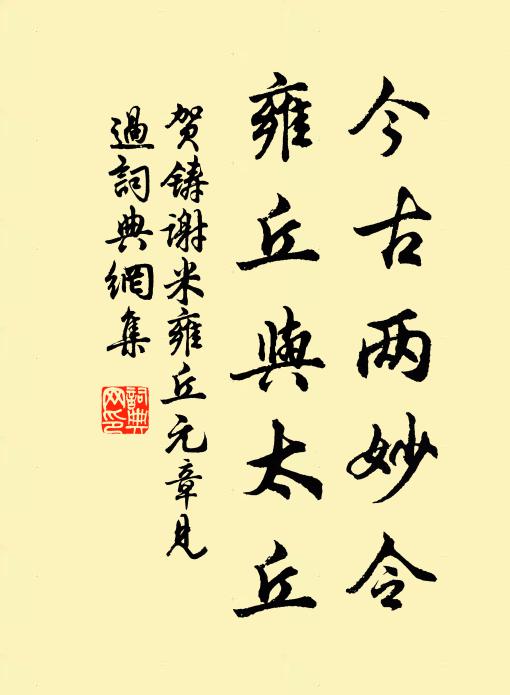 今古两妙令
雍丘與太丘
贺铸谢米雍丘元章見
過詞典網集
詞典
网印